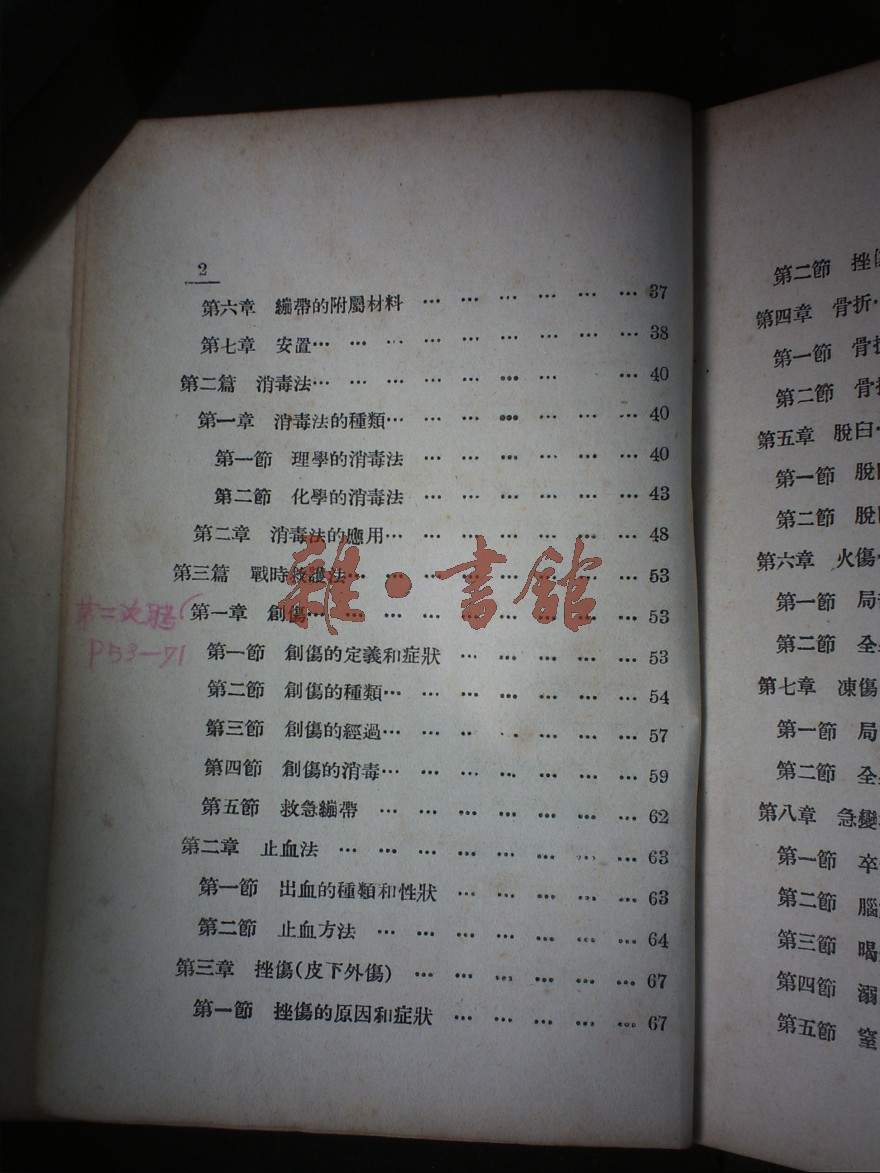 2
第六章 繃帶的附屬材料 … … … … … … 37
第七章 安置… … … … … … … … … 38
第二篇 消毒法… … … … … … … … 40
第一章 消毒法的種類… … … … … … … 40
第一節 理學的消毒法 … … … … … … 40
第二節 化學的消毒法 … … … … … … 43
第二章 消毒法的應用… … … … … … … 48
第三篇 戰時救護法… … … … … … … … 53
第一章 創傷… … … … … … … … … 53
第一節 創傷的定義和症狀 … … … … … 53
第二節 創傷的種類… … … … … … … 54
第三節 創傷的經過… … … … … … … 57
第四節 創傷的消毒… … … … … … … 59
第五節 救急繃帶 … … … … … … … 62
第二章 止血法 … … … … … … … … 63
第一節 出血的種類和性狀 … … … … … 63
第二節 止血方法 … … … … … … … 64
第三章 挫傷(皮下外傷) … … … … … … 67
第一節 挫傷的原因和症狀 … … … … … 67
第二
P53—71
雜·書館
第二節 挫傷
第四章 骨折…
第一節 骨折
第二節 骨折
第五章 脫臼…
第一節 脫臼
第二節 脫臼
第六章 火傷…
第一節 局部
第二節 全身
第七章 凍傷
第一節 局
第二節 全身
第八章 急變
第一節 卒
第二節 腦
第三節 喝
第四節 溺
第五節 窒